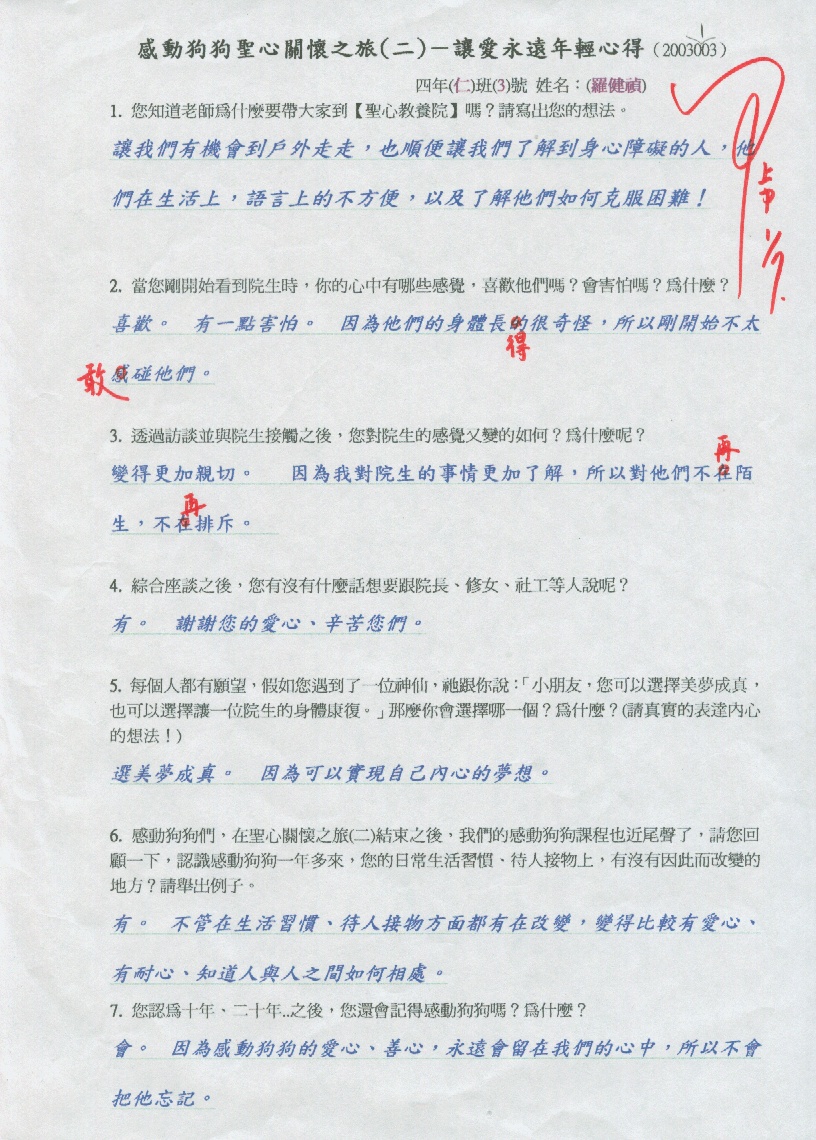 感動狗狗聖心關懷之旅(二)－讓愛永遠年輕心得（2003003）
1
四年(仁)班(3)號 姓名：(羅健禎)
1. 您知道老師爲什麼要帶大家到【聖心教養院】嗎？請寫出您的想法。
讓我們有機會到戶外走走，也順便讓我們了解到身心障礙的人，他
們在生活上，語言上的不方便，以及了解他們如何克服困難！
甲
上
2. 當您剛開始看到院生時，你的心中有哪些感覺，喜歡他們嗎？會害怕嗎？爲什麼？
喜歡。 有一點害怕。 因為他們的身體長的很奇怪，所以剛開始不太
得
敢
感碰他們。
3. 透過訪談並與院生接觸之後，您對院生的感覺又變的如何？爲什麼呢？
再
變得更加親切。 因為我對院生的事情更加了解，所以對他們不在陌
再
生，不在排斥。
4. 綜合座談之後，您有沒有什麼話想要跟院長、修女、社工等人說呢？
有。 謝謝您的愛心、辛苦您們。
5. 每個人都有願望，假如您遇到了一位神仙，祂跟你說：「小朋友，您可以選擇美夢成真，
也可以選擇讓一位院生的身體康復。」那麼你會選擇哪一個？爲什麼？(請真實的表達內心
的想法！)
選美夢成真。 因為可以實現自己內心的夢想。
6. 感動狗狗們，在聖心關懷之旅(二)結束之後，我們的感動狗狗課程也近尾聲了，請您回
顧一下，認識感動狗狗一年多來，您的日常生活習慣、待人接物上，有沒有因此而改變的
地方？請舉出例子。
有。 不管在生活習慣、待人接物方面都有在改變，變得比較有愛心、
有耐心、知道人與人之間如何相處。
7. 您認爲十年、二十年..之後，您還會記得感動狗狗嗎？爲什麼？
會。 因為感動狗狗的愛心、善心，永遠會留在我們的心中，所以不會
把他忘記。